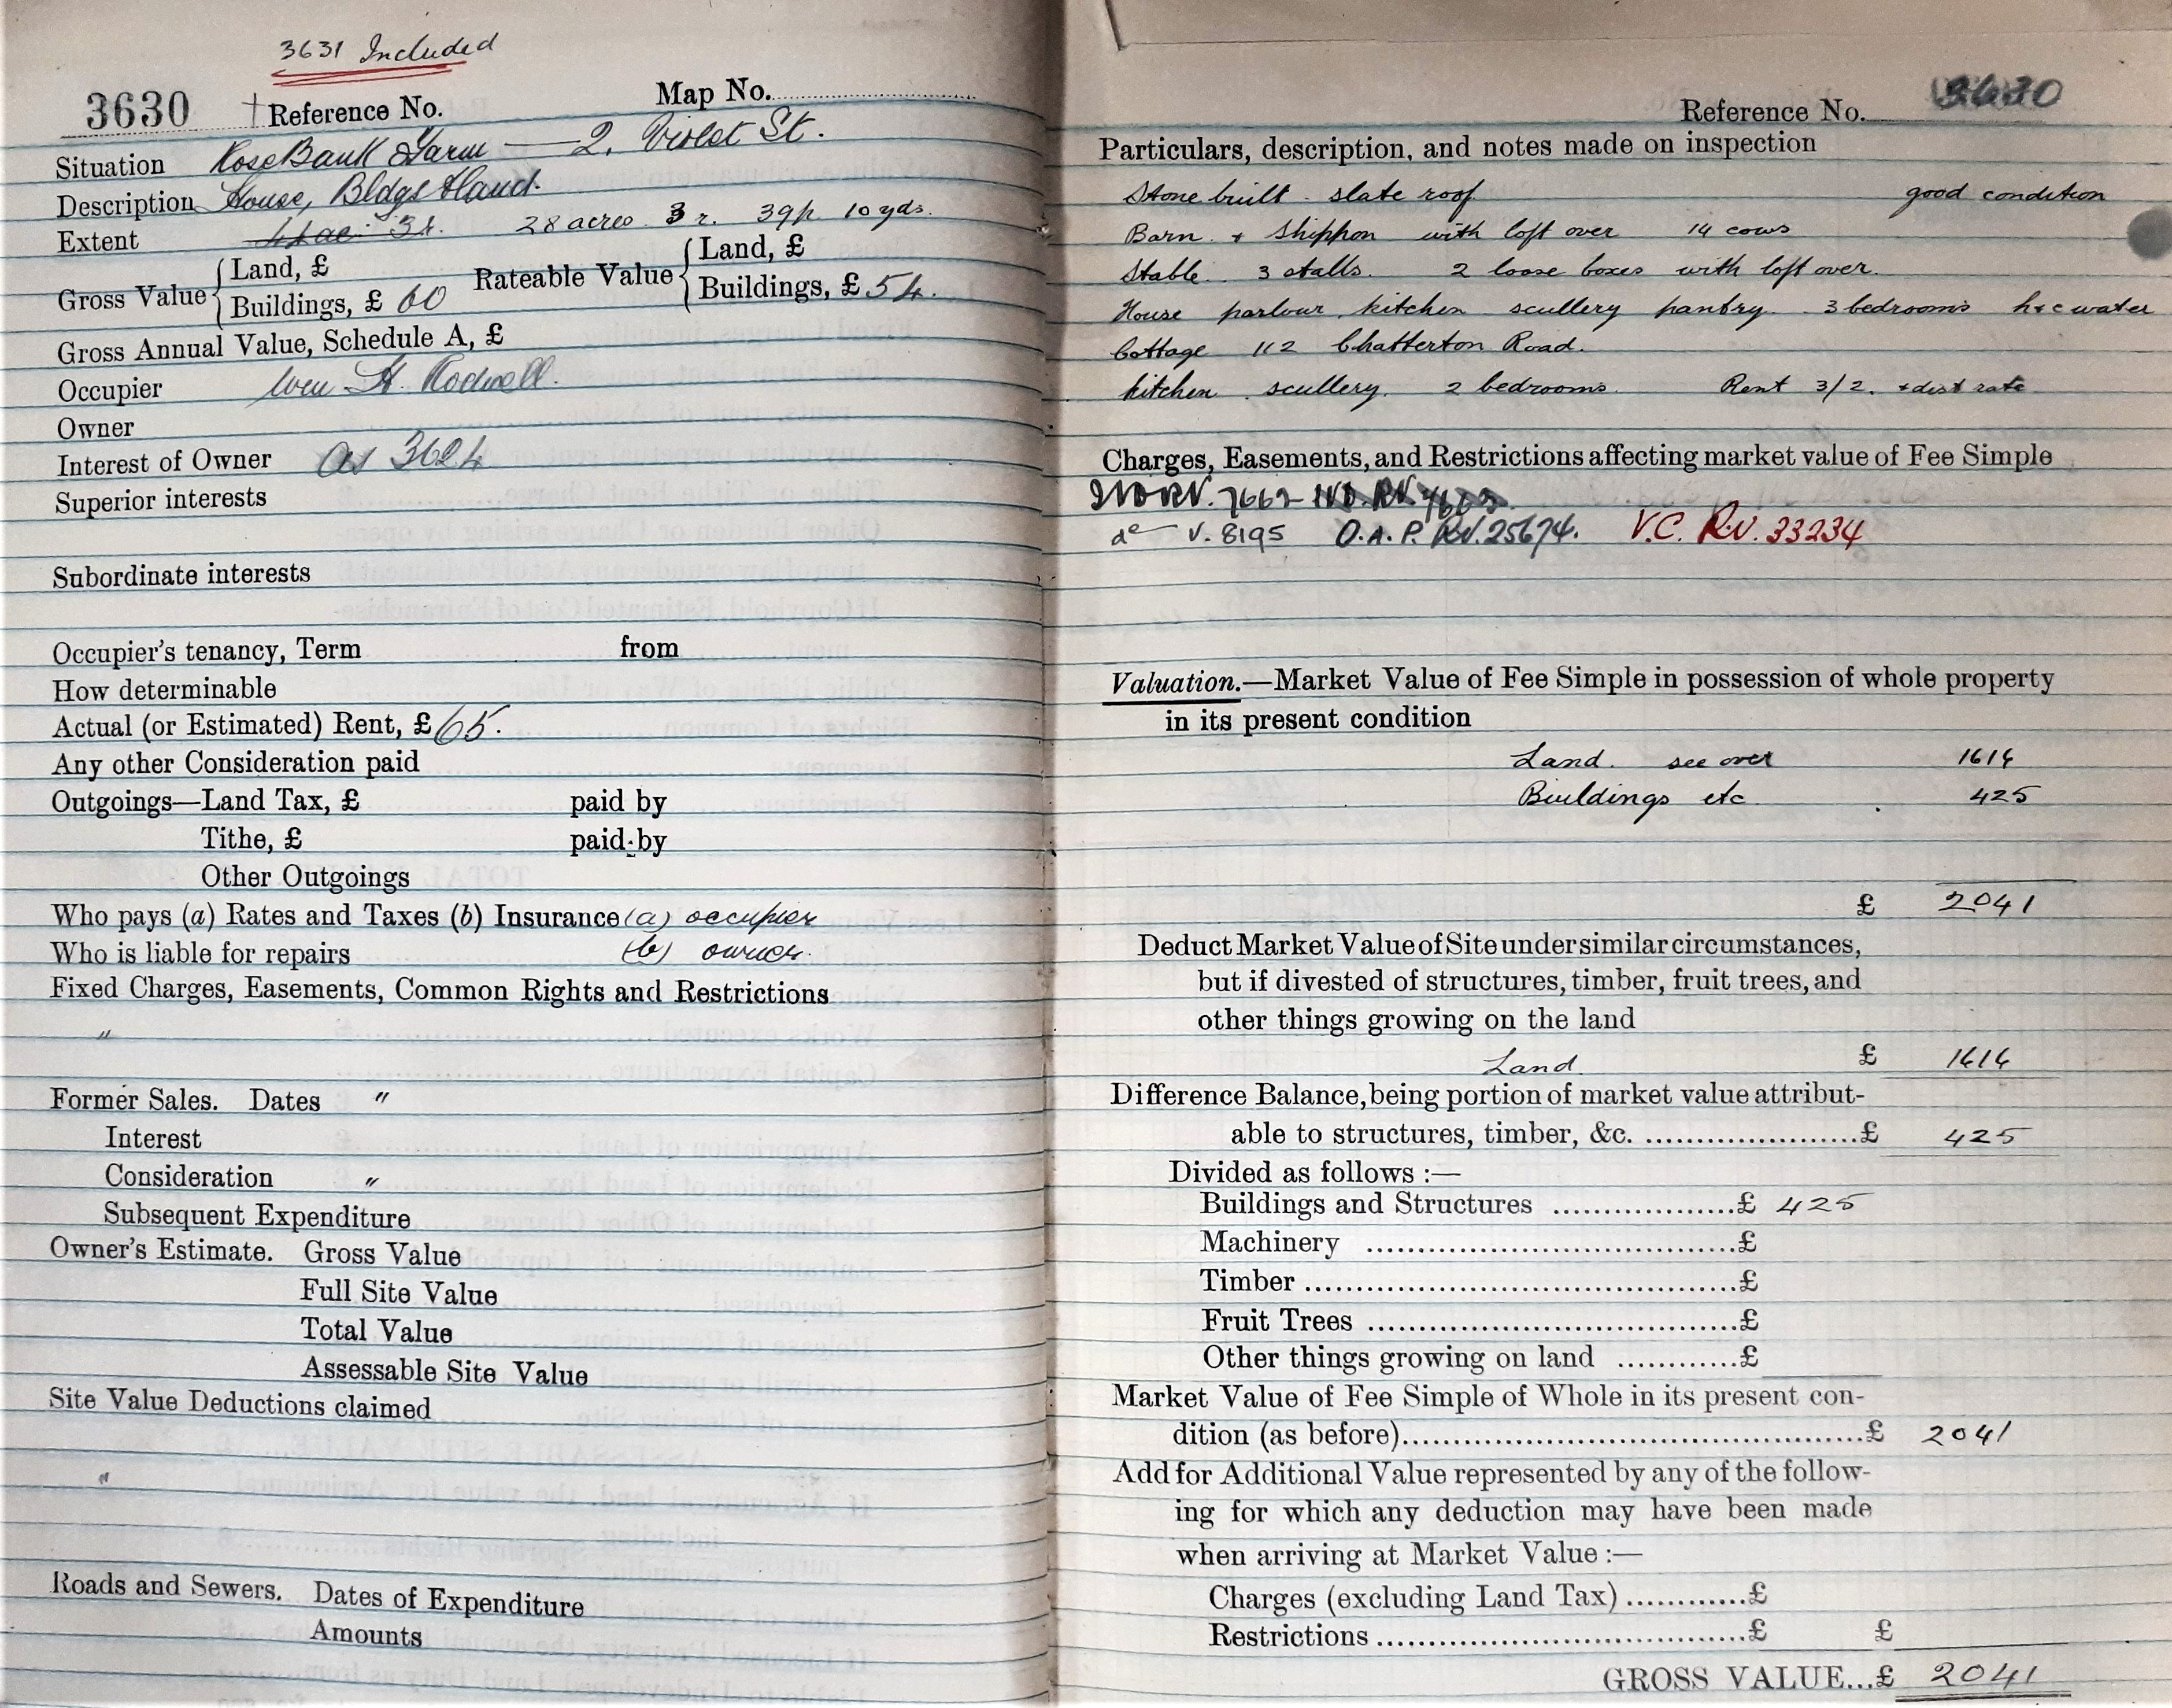 3631 Included
3630 Reference No. Map No.
Situation RoseBank Farm — 2, Violet St.
Description House, Bldgs & land.
Extent 3r. 28 acres 3 r. 39p 10 yds.
Gross Value { Land, £ Rateable Value { Land, £
Buildings, £ 60 Buildings, £ 54.
Gross Annual Value, Schedule A, £
Occupier Wm H. Rodwell.
Owner
Interest of Owner as 3624
Superior interests
Subordinate interests
Occupier's tenancy, Term from
How determinable
Actual (or Estimated) Rent, £ 65.
Any other Consideration paid
Outgoings—Land Tax, £ paid by
Tithe, £ paid by
Other Outgoings
Who pays (a) Rates and Taxes (b) Insurance (a) occupier
Who is liable for repairs (b) owner.
Fixed Charges, Easements, Common Rights and Restrictions
"
Former Sales. Dates "
Interest
Consideration "
Subsequent Expenditure
Owner's Estimate. Gross Value
Full Site Value
Total Value
Assessable Site Value
Site Value Deductions claimed
"
Roads and Sewers. Dates of Expenditure
Amounts
Reference No. 3630
Particulars, description, and notes made on inspection
Stone built - slate roof good condition
Barn + Shippon with loft over 14 cows
Stable. 3 stalls. 2 loose boxes with loft over.
House parlour, kitchen scullery pantry. 3 bedrooms h & c water
Cottage 112 Chatterton Road.
kitchen scullery. 2 bedrooms. Rent 3/2. + dist rate
Charges, Easements, and Restrictions affecting market value of Fee Simple
RV. 7662
do V. 8195 O.A.P. RV. 25674. V.C. RV. 33234
Valuation.—Market Value of Fee Simple in possession of whole property
in its present condition
Land. see over 1616
Buildings etc. 425
£ 2041
Deduct Market Value of Site under similar circumstances,
but if divested of structures, timber, fruit trees, and
other things growing on the land
Land. £ 1616
Difference Balance, being portion of market value attribut-
able to structures, timber, &c. .....................£ 425
Divided as follows :—
Buildings and Structures ..................£ 425
Machinery .....................................£
Timber ...........................................£
Fruit Trees .....................................£
Other things growing on land ............£
Market Value of Fee Simple of Whole in its present con-
dition (as before)..............................................£ 2041
Add for Additional Value represented by any of the follow-
ing for which any deduction may have been made
when arriving at Market Value :—
Charges (excluding Land Tax) ............£
Restrictions .....................................£ £
GROSS VALUE...£ 2041